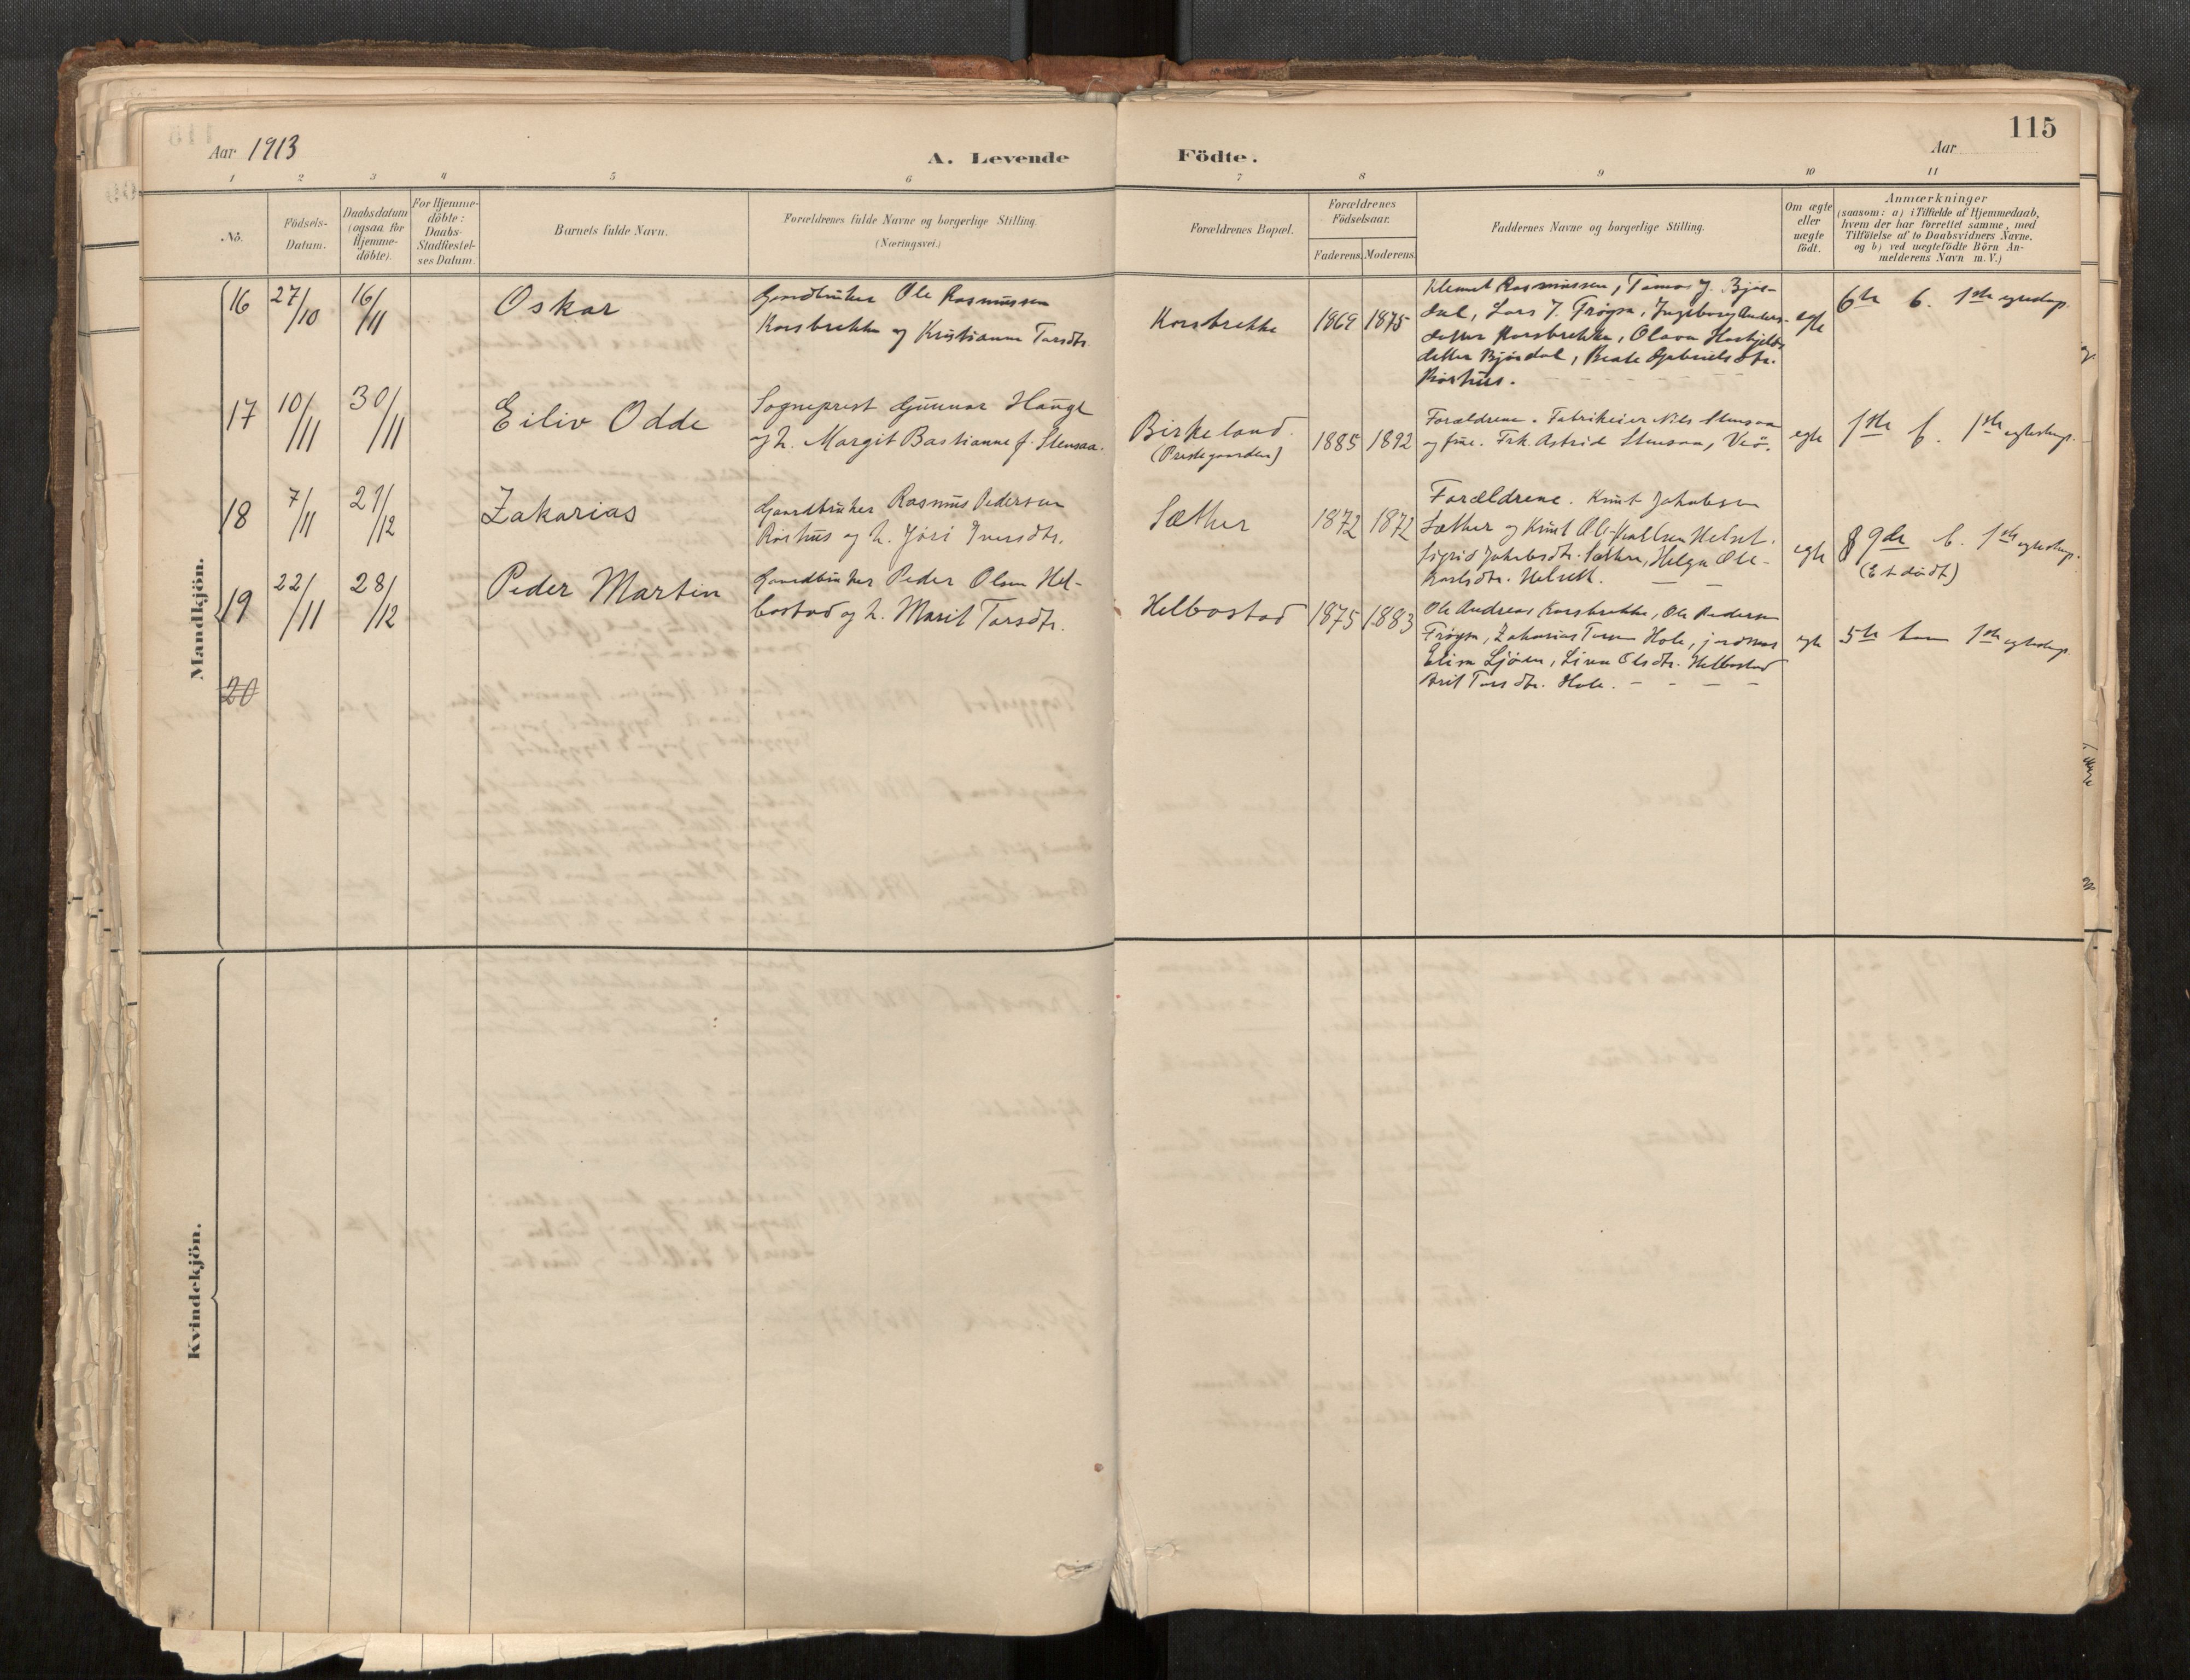 115
Aar 1913
A. Levende Födte.
Aar
1 2 3 4 5 6 7 8 9 10 11
No.
Födsels-
Datum.
Daabsdatum
(ogsaa for
Hjemme-
döbte).
For Hjemme-
döbte:
Daabs-
Stadfæstel-
ses Datum.
Barnets fulde Navn.
Forældrenes fulde Navne og borgerlige Stilling.
(Næringsvei.)
Forældrenes Bopæl.
Forældrenes
Födselsaar.
Faderens. Moderens.
Faddernes Navne og borgerlige Stilling.
Om ægte
eller
uægte
födt.
Anmærkninger
(saasom: a) i Tilfælde af Hjemmedaab,
hvem der har forrettet samme, med
Tilföielse af to Daabsvidners Navne.
og b) ved uægtefödte Börn An-
melderens Navn m. V.)
Mandkjön.
16 27/10 16/11 Oskar
Gardbruker Ole Rasmussen
Korsbrekke og Kristianna Tarsdtr.
Korsbrekke 1869 1875
Klemet Rasmussen, Tomas J. Bjør-
dal, Lars J. Frøysa, Ingeborg Anders-
detter Korsbrekke, Olava
detter Bjørdal, Beate Gabrielsdtr.
Rørhus.
egte
6te b. 1ste egteskap.
17 10/11 30/11 Eiliv Odde
Sogneprest Gunnar Hauge
og h. Margit Bastianne f. Stensaa.
Birkeland.
(Prestegaarden)
1885 1892
Forældrene. Fabrikeier Nils Stensaa
og frue. Frk. Astrid Stensaa, Veö.
egte
1ste b. 1ste egteskap.
18 7/11 21/12 Zakarias
Gaardbruker Rasmus Pedersen
Rørhus og h. Jøri Iversdtr.
Sæther 1872 1872
Forældrene. Knut Jakobsen
Sæther og Knut Ole-Karlsen Helset.
Sigrid Jakobsdtr. Sæther, Helga Ole-
Karlsdtr. Helseth.
egte
9de b. 1ste egteskap.
(Et dødt)
19 22/11 28/12 Peder Martin
Gaardbruker Peder Olsen Hel-
bostad og h. Marit Tarsdtr.
Helbostad 1875 1883
Ole Andreas Korsbrekke, Ole Pedersen
Frøysa, Zakarias Tarsen Hole, jordmor
Elisa Ljøen, Sira Olsdtr. Helbostad
Brit Tarsdtr. Hole.
egte
5te barn 1ste egteskap.
20
Kvindekjön.